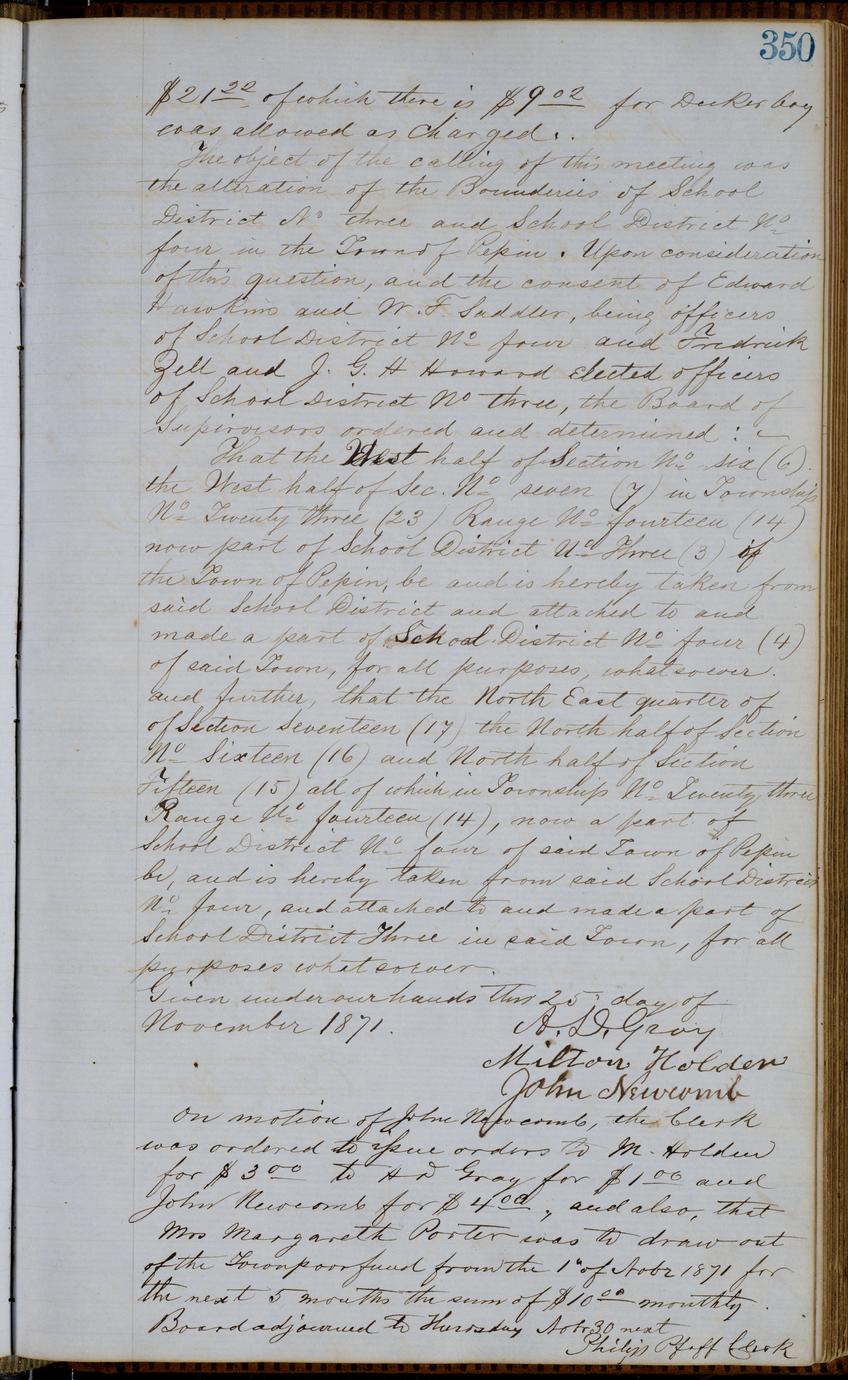 350
$21 22 of which there is $9 02 for Decker boy
was allowed as charged.
The object of the calling of this meeting was
the alteration of the Bounderies of School
District No three and School District No
four in the Town of Pepin. Upon consideration
of this question, and the consent of Edward
Hawkins and W. F. Saddler, being officers
of School District No four and Fredrick
Zell and J. G. H Howard elected officers
of School District No three, the Board of
Supervisors ordered and determined :
That the West half of Section No six (6).
the West half of Sec. No seven (7) in Township
No Twenty three (23) Range No fourteen (14)
now part of School District No Three (3) of
the Town of Pepin, be and is hereby taken from
said School District and attached to and
made a part of School District No four (4)
of said Town, for all purposes, whatsoever.
and further, that the North East quarter of
of Section Seventeen (17) the North half of Section
No Sixteen (16) and North half of Section
Fifteen (15) all of which in Township No Twenty three
Range No fourteen (14), now a part of
School District No four of said Town of Pepin
be, and is hereby taken from said School District
No four, and attached to and made a part of
School District Three in said Town, for all
purposes whatsoever.
Given under our hands this 25 day of
November 1871.
A. D. Gray
Milton Holden
John Newcomb
On motion of John Newcomb, the Clerk
was ordered to issue orders to M. Holden
for $3 00 to A D Gray for $1 00 and
John Newcomb for $4 00, and also, that
Mrs Margareth Porter was to draw out
of the Town poor fund from the 1st of Nobr 1871 for
the next 5 months the sum of $10 00 monthly.
Board adjourned to Thursday Nobr 30 next
Philip Pfaff Clerk